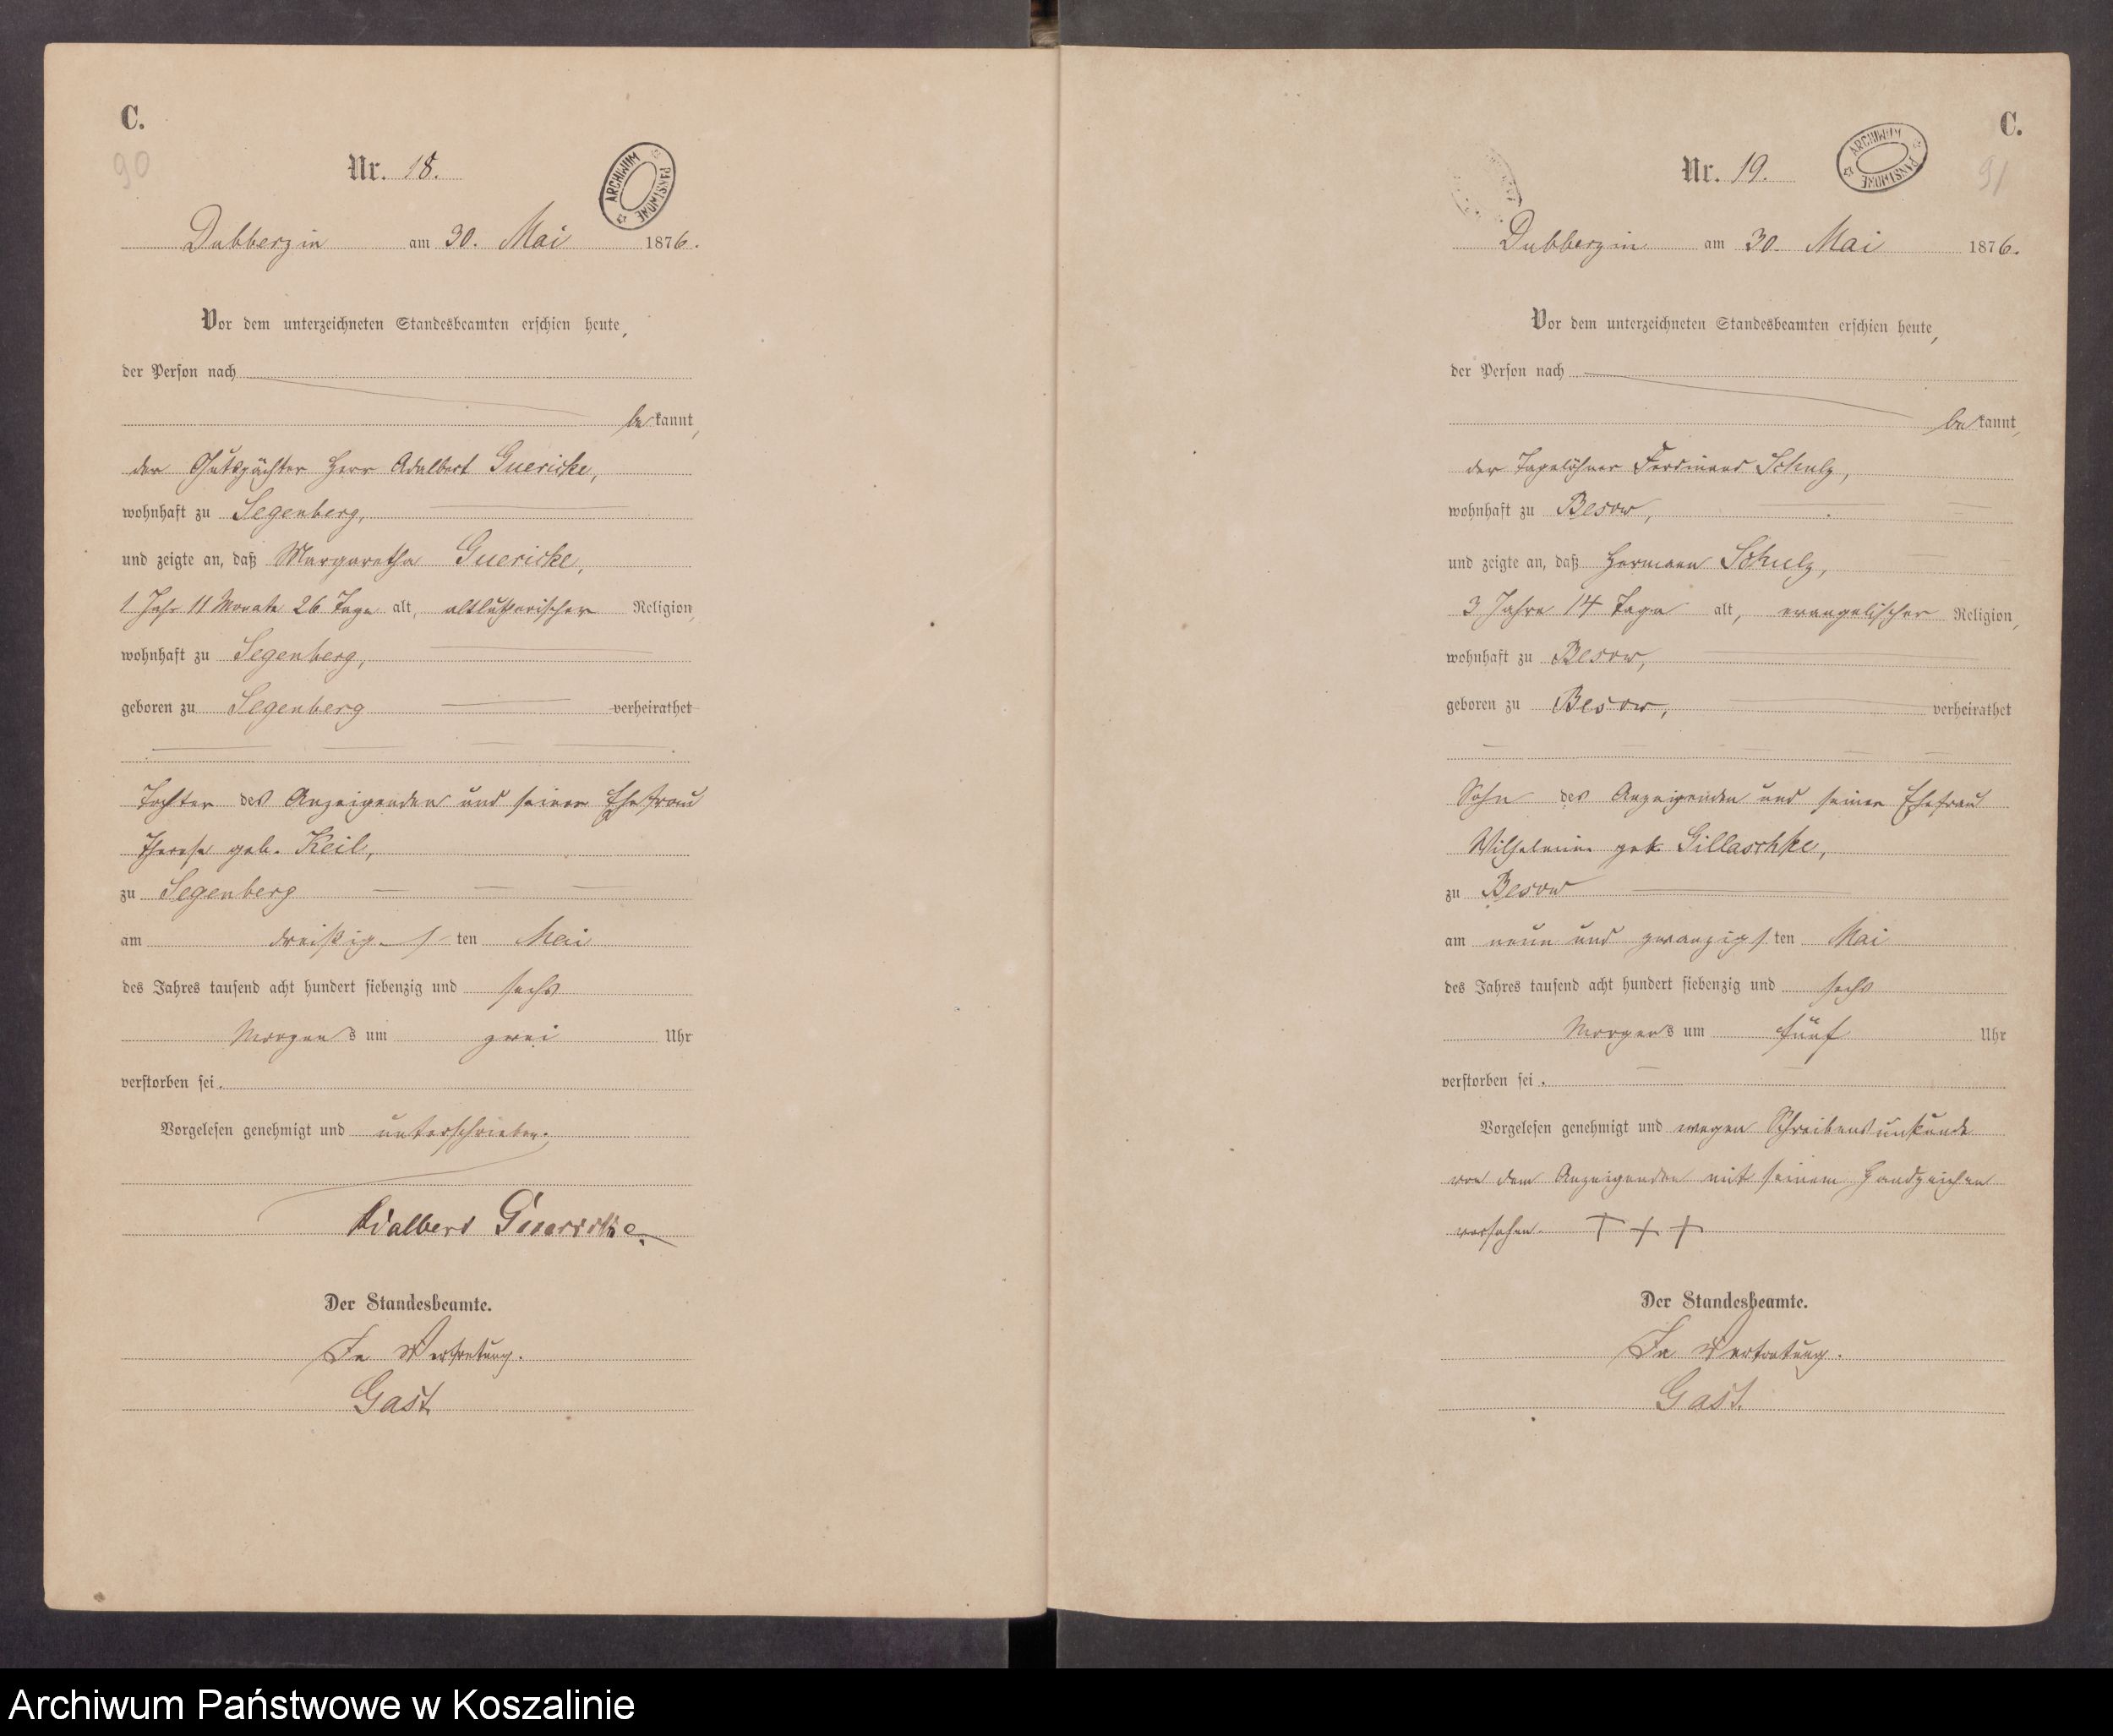 C.
90
Nr. 18.
ARCHIWUM PAŃSTWOWE
Dubberzin am 30. Mai 1876.
Vor dem unterzeichneten Standesbeamten erschien heute,
der Person nach
bekannt,
der Gutspächter Herr Adalbert Guericke,
wohnhaft zu Segenberg,
und zeigte an, daß Margarethe Guericke,
1 Jahr 11 Monate 26 Tage alt, altlutherischer Religion,
wohnhaft zu Segenberg,
geboren zu Segenberg verheirathet
Tochter des Anzeigenden und seiner Ehefrau
Therese geb. Keil,
zu Segenberg
am dreißigsten Mai
des Jahres tausend acht hundert siebenzig und sechs
Morgens um zwei Uhr
verstorben sei.
Vorgelesen genehmigt und unterschrieben.
Adalbert Guericke.
Der Standesbeamte.
In Vertretung.
Gast.
C.
91
Nr. 19.
ARCHIWUM PAŃSTWOWE
Dubberzin am 30. Mai 1876.
Vor dem unterzeichneten Standesbeamten erschien heute,
der Person nach
bekannt,
der Tagelöhner Ferdinand Schulz,
wohnhaft zu Besow,
und zeigte an, daß Hermann Schulz,
3 Jahre 14 Tage alt, evangelischer Religion,
wohnhaft zu Besow,
geboren zu Besow, verheirathet
Sohn des Anzeigenden und seiner Ehefrau
Wilhelmine geb. Gillaschke,
zu Besow
am neun und zwanzigsten Mai
des Jahres tausend acht hundert siebenzig und sechs
Morgens um fünf Uhr
verstorben sei.
Vorgelesen genehmigt und wegen Schreibensunkunde
von dem Anzeigenden mit seinem Handzeichen
versehen. + + +
Der Standesbeamte.
In Vertretung.
Gast.
Archiwum Państwowe w Koszalinie